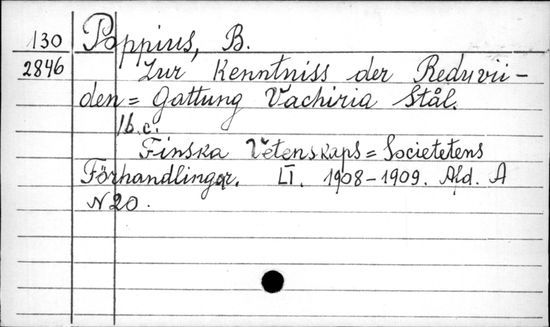 130 Poppius, B.
2846 Zur Kenntniss der Reduvii-
den= Gattung Vachiria Stål.
Finska Vetenskaps= Societetens
Förhandlingar. LI. 1908-1909. Afd. A
N 20.